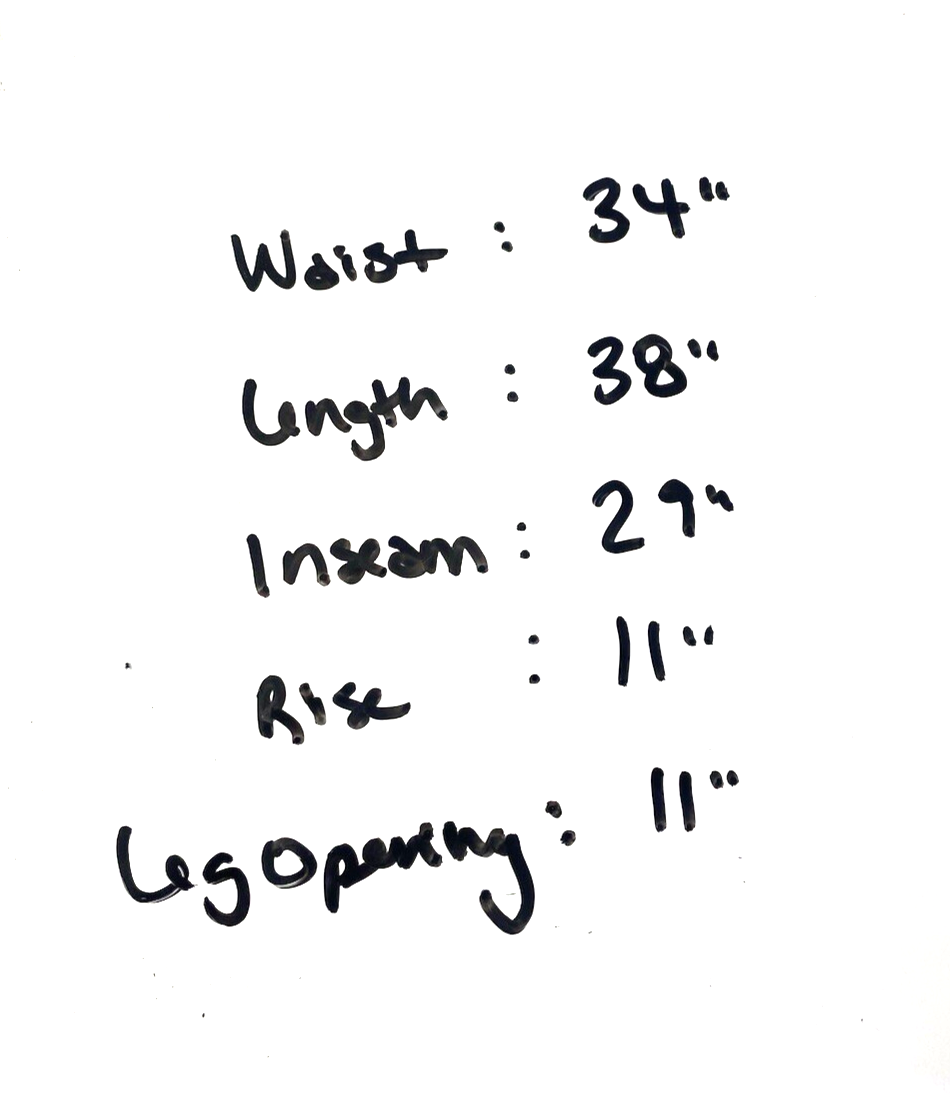 Waist : 34"
Length : 38"
Inseam : 29"
Rise : 11"
Leg Opening : 11"